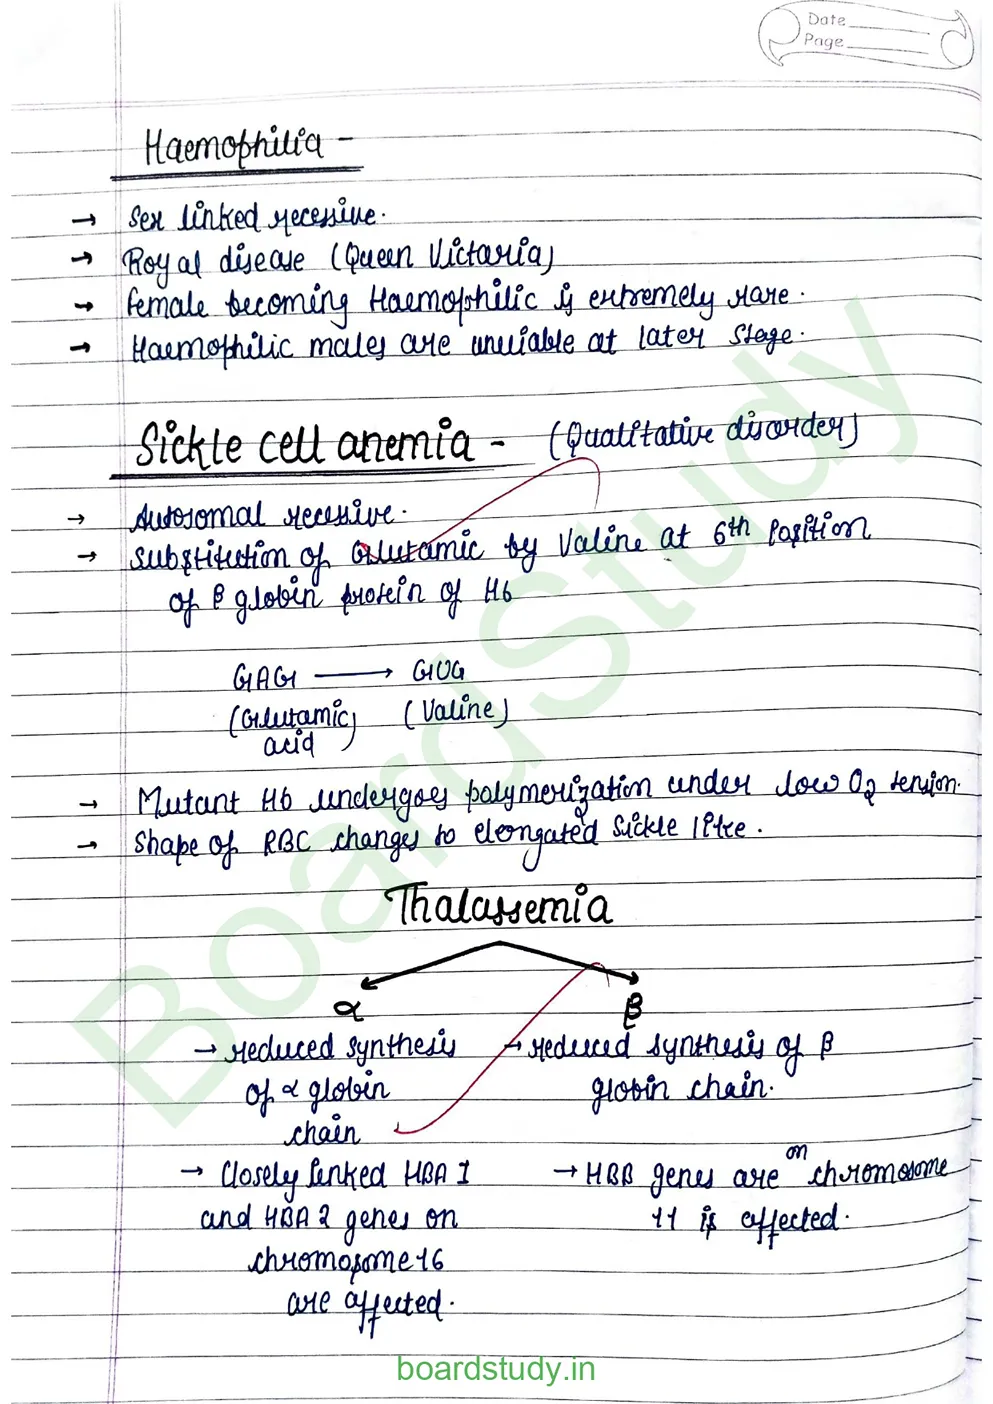 Date
Page
Haemophilia -
→ Sex linked recessive.
→ Royal disease (Queen Victoria)
→ female becoming Haemophilic is extremely rare.
→ Haemophilic males are unviable at later stage.
Sickle cell anemia - (Qualitative disorder)
→ Autosomal recessive.
→ Substitution of Glutamic by Valine at 6th Position
of β globin protein of Hb
GAG ⟶ GUG
(Glutamic acid) (Valine)
→ Mutant Hb undergoes polymerization under low O2 tension.
→ Shape of RBC changes to elongated Sickle like.
Thalassemia
α β
→ reduced synthesis → reduced synthesis of β
of α globin globin chain.
chain
→ Closely linked HBA 1 → HBB genes are on chromosome
and HBA 2 genes on 11 is affected.
chromosome 16
are affected.
BoardStudy
boardstudy.in